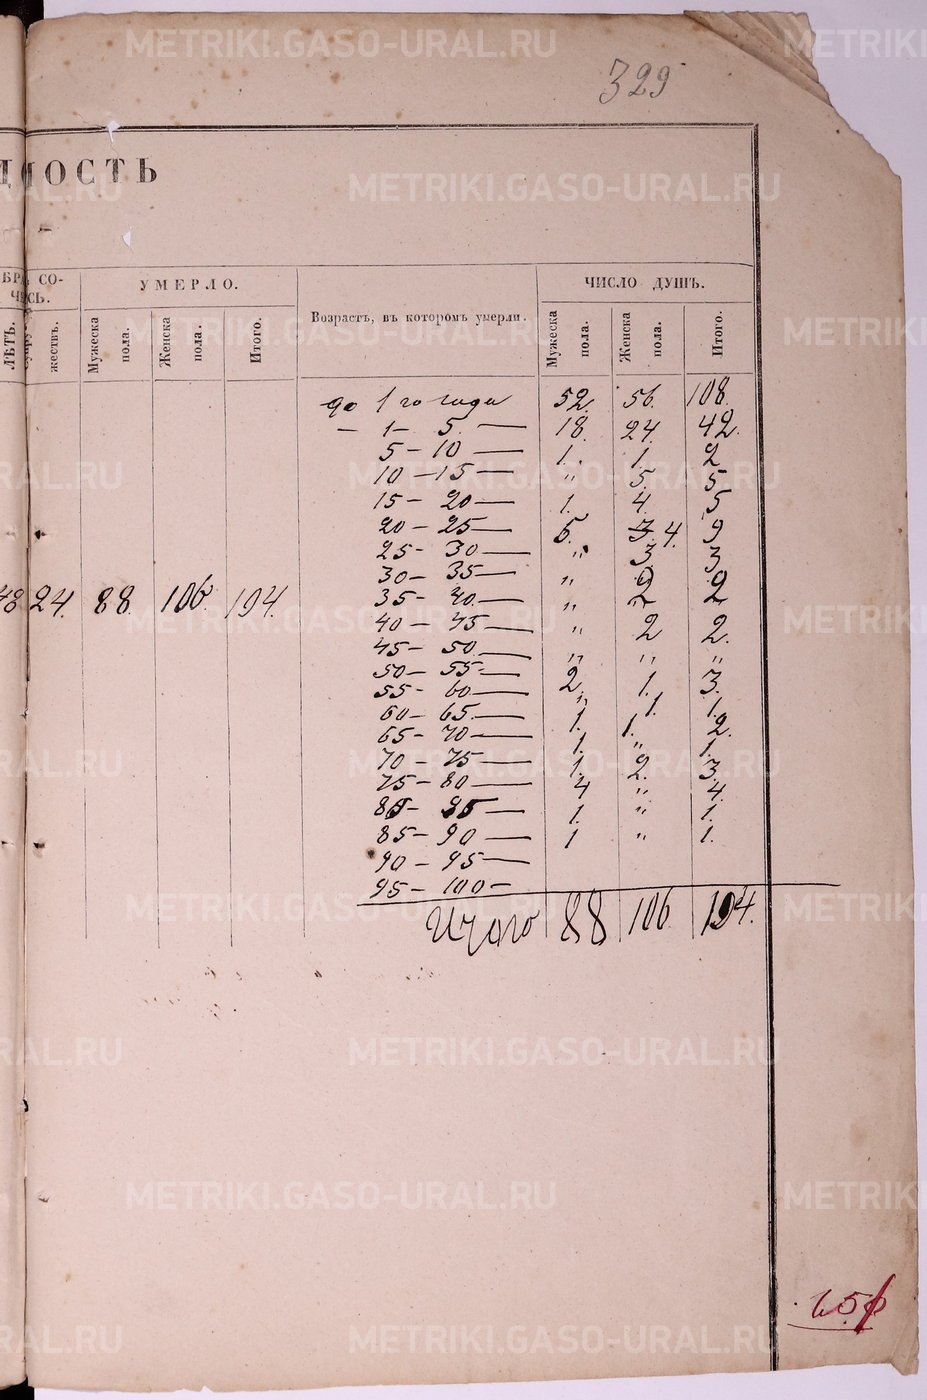 329
ДОСТЬ
БР. СО-
ЧЕСЬ.
УМЕРЛО.
Возрастъ, въ которомъ умерли.
ЧИСЛО ДУШЪ.
ЛѢТЪ.
жествъ.
Мужеска пола.
Женска пола.
Итого.
Мужеска пола.
Женска пола.
Итого.
до 1 го года 52. 56. 108.
— 1 — 5. — 18. 24. 42.
5 — 10 — 1. 1. 2
10 — 15 — " 5. 5
15 — 20 — 1. 4. 5
20 — 25 — 5. 3. 4. 9
25 — 30 — " 3 3
30 — 35 — " 2 2
35 — 40 — " " "
48 24. 88. 106. 194.
40 — 45 — " 2 2.
45 — 50 — " " "
50 — 55 — 2. 1. 3.
55 — 60 — " 1. 1.
60 — 65 — 1. 1. 2.
65 — 70 — 1. " 1.
70 — 75 — 1. 2. 3.
75 — 80 — 4 " 4.
80 — 85 — 1. " 1.
85 — 90 — 1 " 1.
90 — 95 —
95 — 100 —
Итого 88 106 194.
METRIKI.GASO-URAL.RU